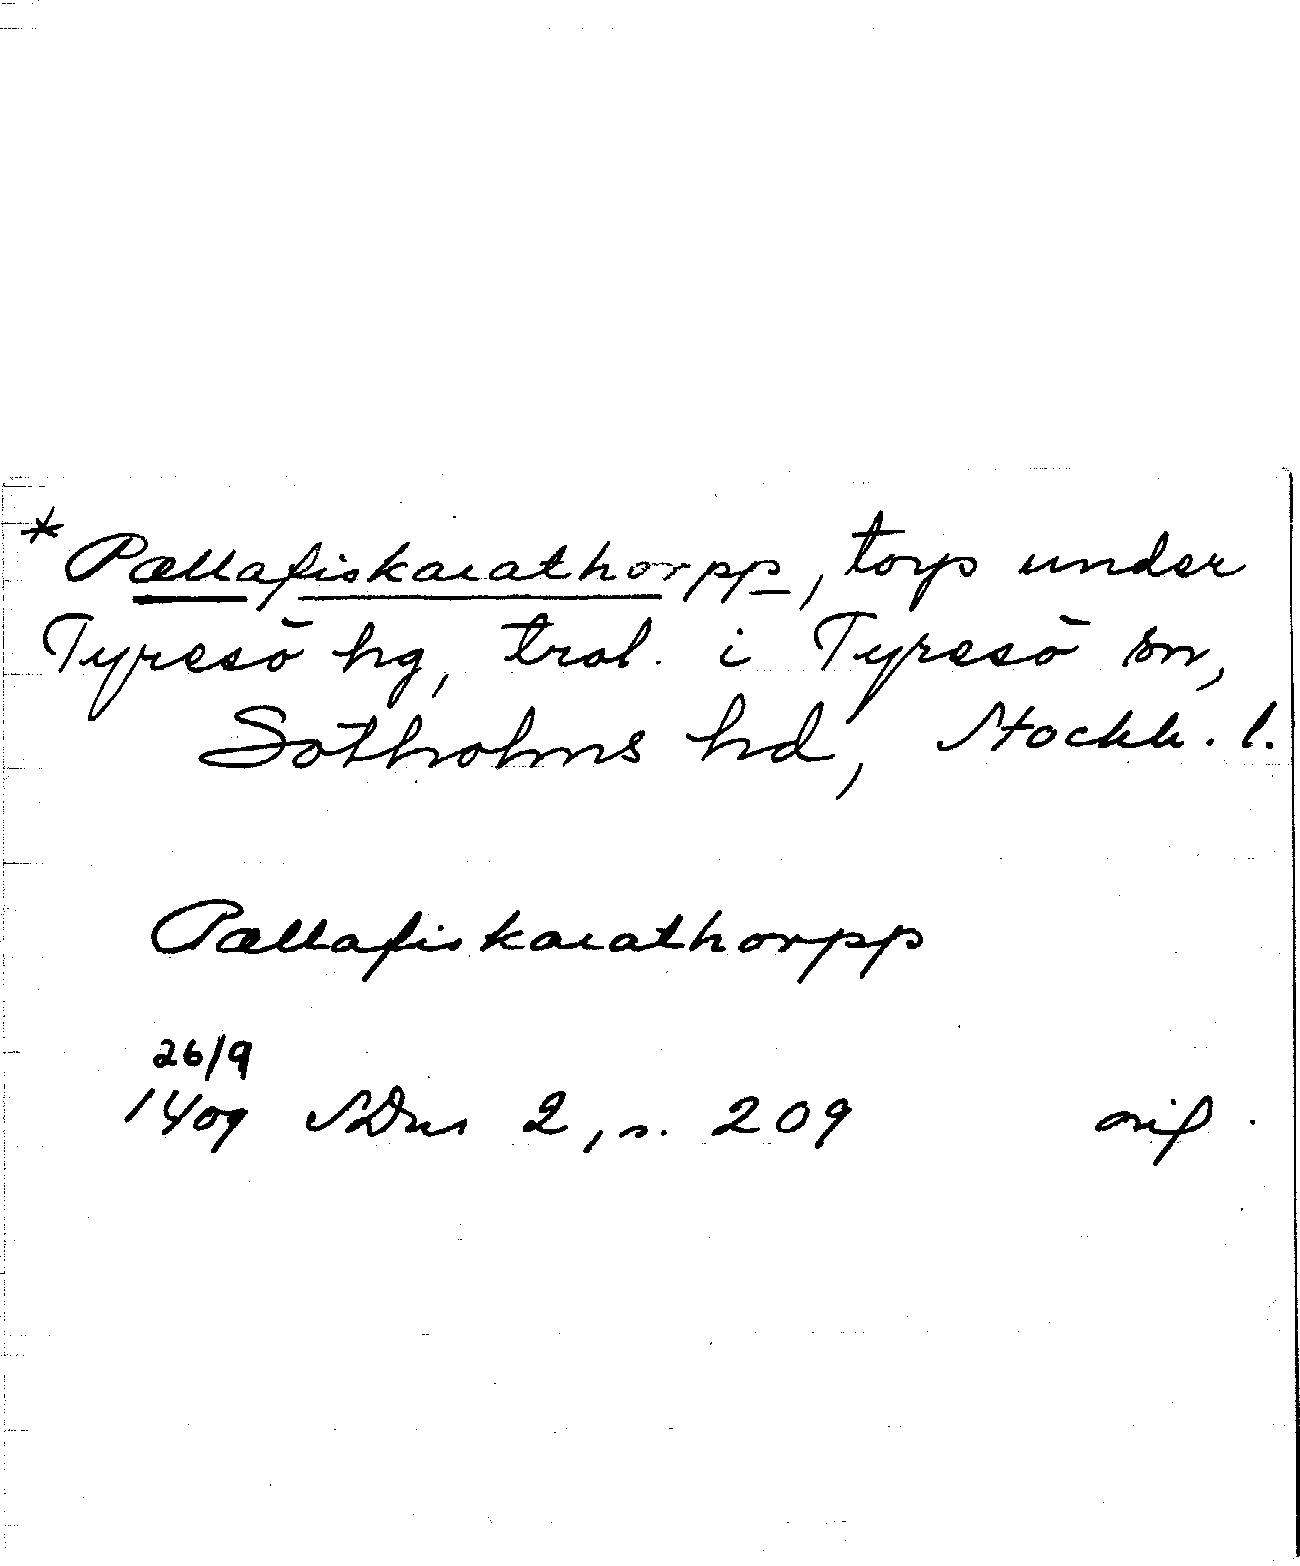 *Pællafiskarathorpp, torp under
Tyresö hg, trol. i Tyresö sn,
Sotholms hd, Stockh. l.
Pællafiskarathorpp
26/9
1409 SDns 2, s. 209 orig.